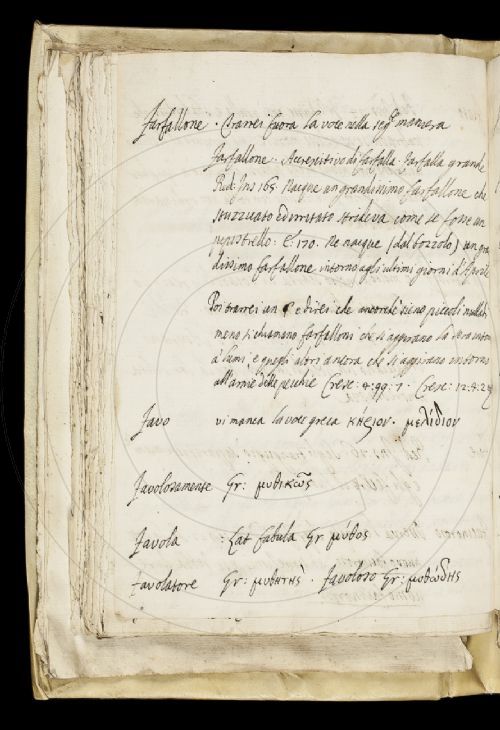 Farfallone . Trarrei fuora la voce nella seg.te maniera
Farfallone . Accrescitivo di farfalla . Farfalla grande
Red: Ins 165. Nacque un grandissimo farfallone che
stuzzicato ed irritato strideva come se fosse un
: E. 170. Ne nacque (dal bozzolo) un gra
dissimo farfallone intorno agli ultimi giorni d'Aprile
Poi trarrei un e direi che ancorche sieno piccoli nulladi
meno si chiamano farfalloni che si aggirano la sera intorno
a' lumi, e quegli altri ancora che si aggirano intorno
all'arnie delle pecchie Cresc: 9: 99: 1 . Cresc: 12: 8: 2
Favo vi manca la voce greca κήριον . μελίδιον
Favolosamente Gr: μυθικῶς
Favola : Lat fabula Gr μύθος
Favolatore Gr: μυθητής . Favoloso Gr: μυθώδης